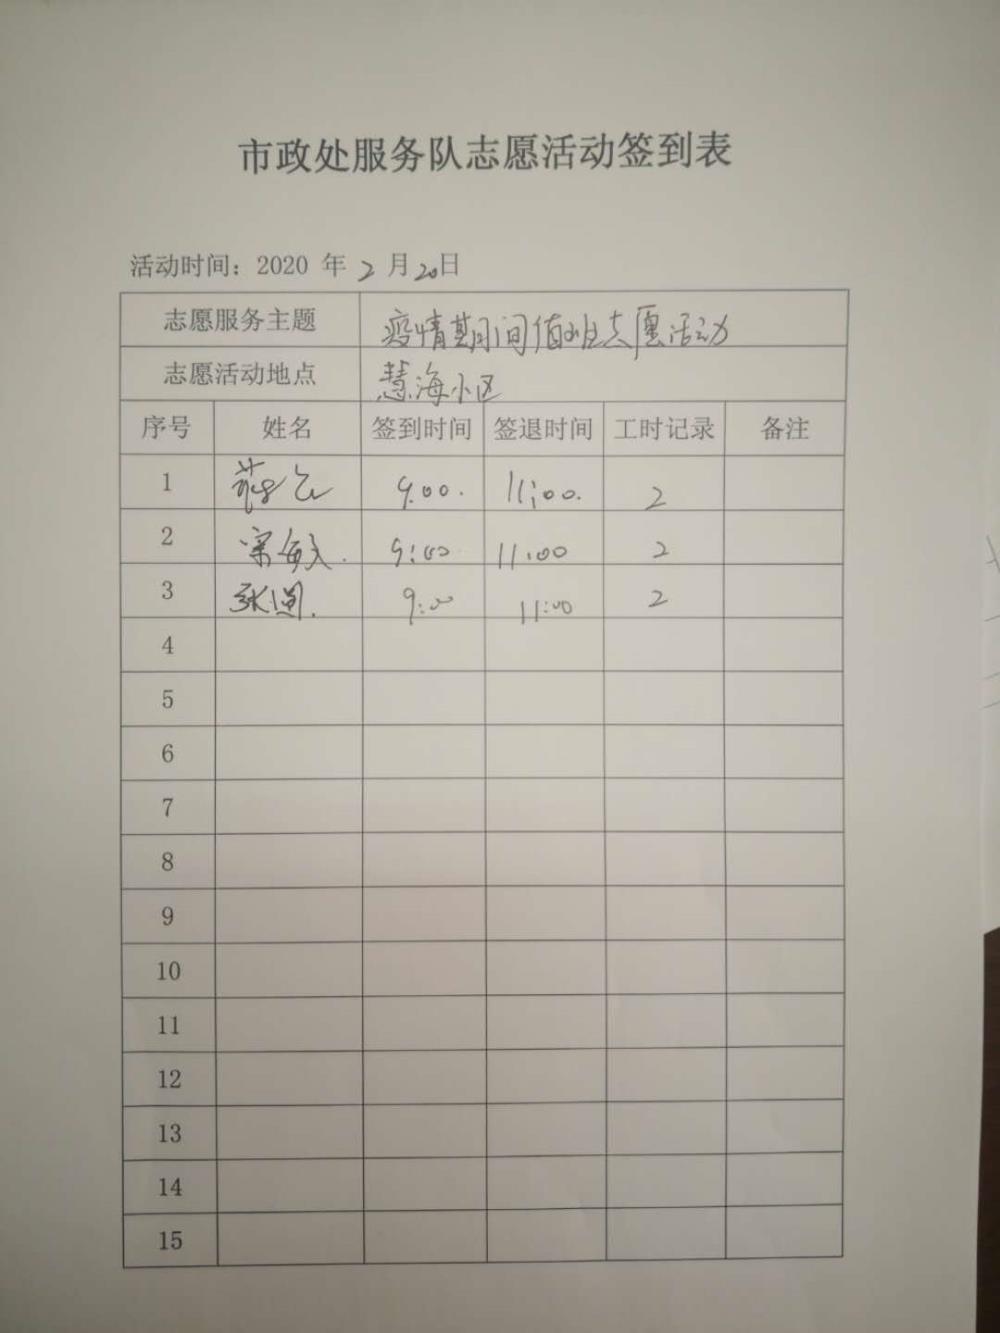 市政处服务队志愿活动签到表
活动时间：2020 年 2 月 20日
志愿服务主题 疫情期间值班志愿活动
志愿活动地点 慧海小区
序号 姓名 签到时间 签退时间 工时记录 备注
1 9:00. 11:00. 2
2 宋海文. 9:00 11:00 2
3 张圆. 9:00 11:00 2
4
5
6
7
8
9
10
11
12
13
14
15